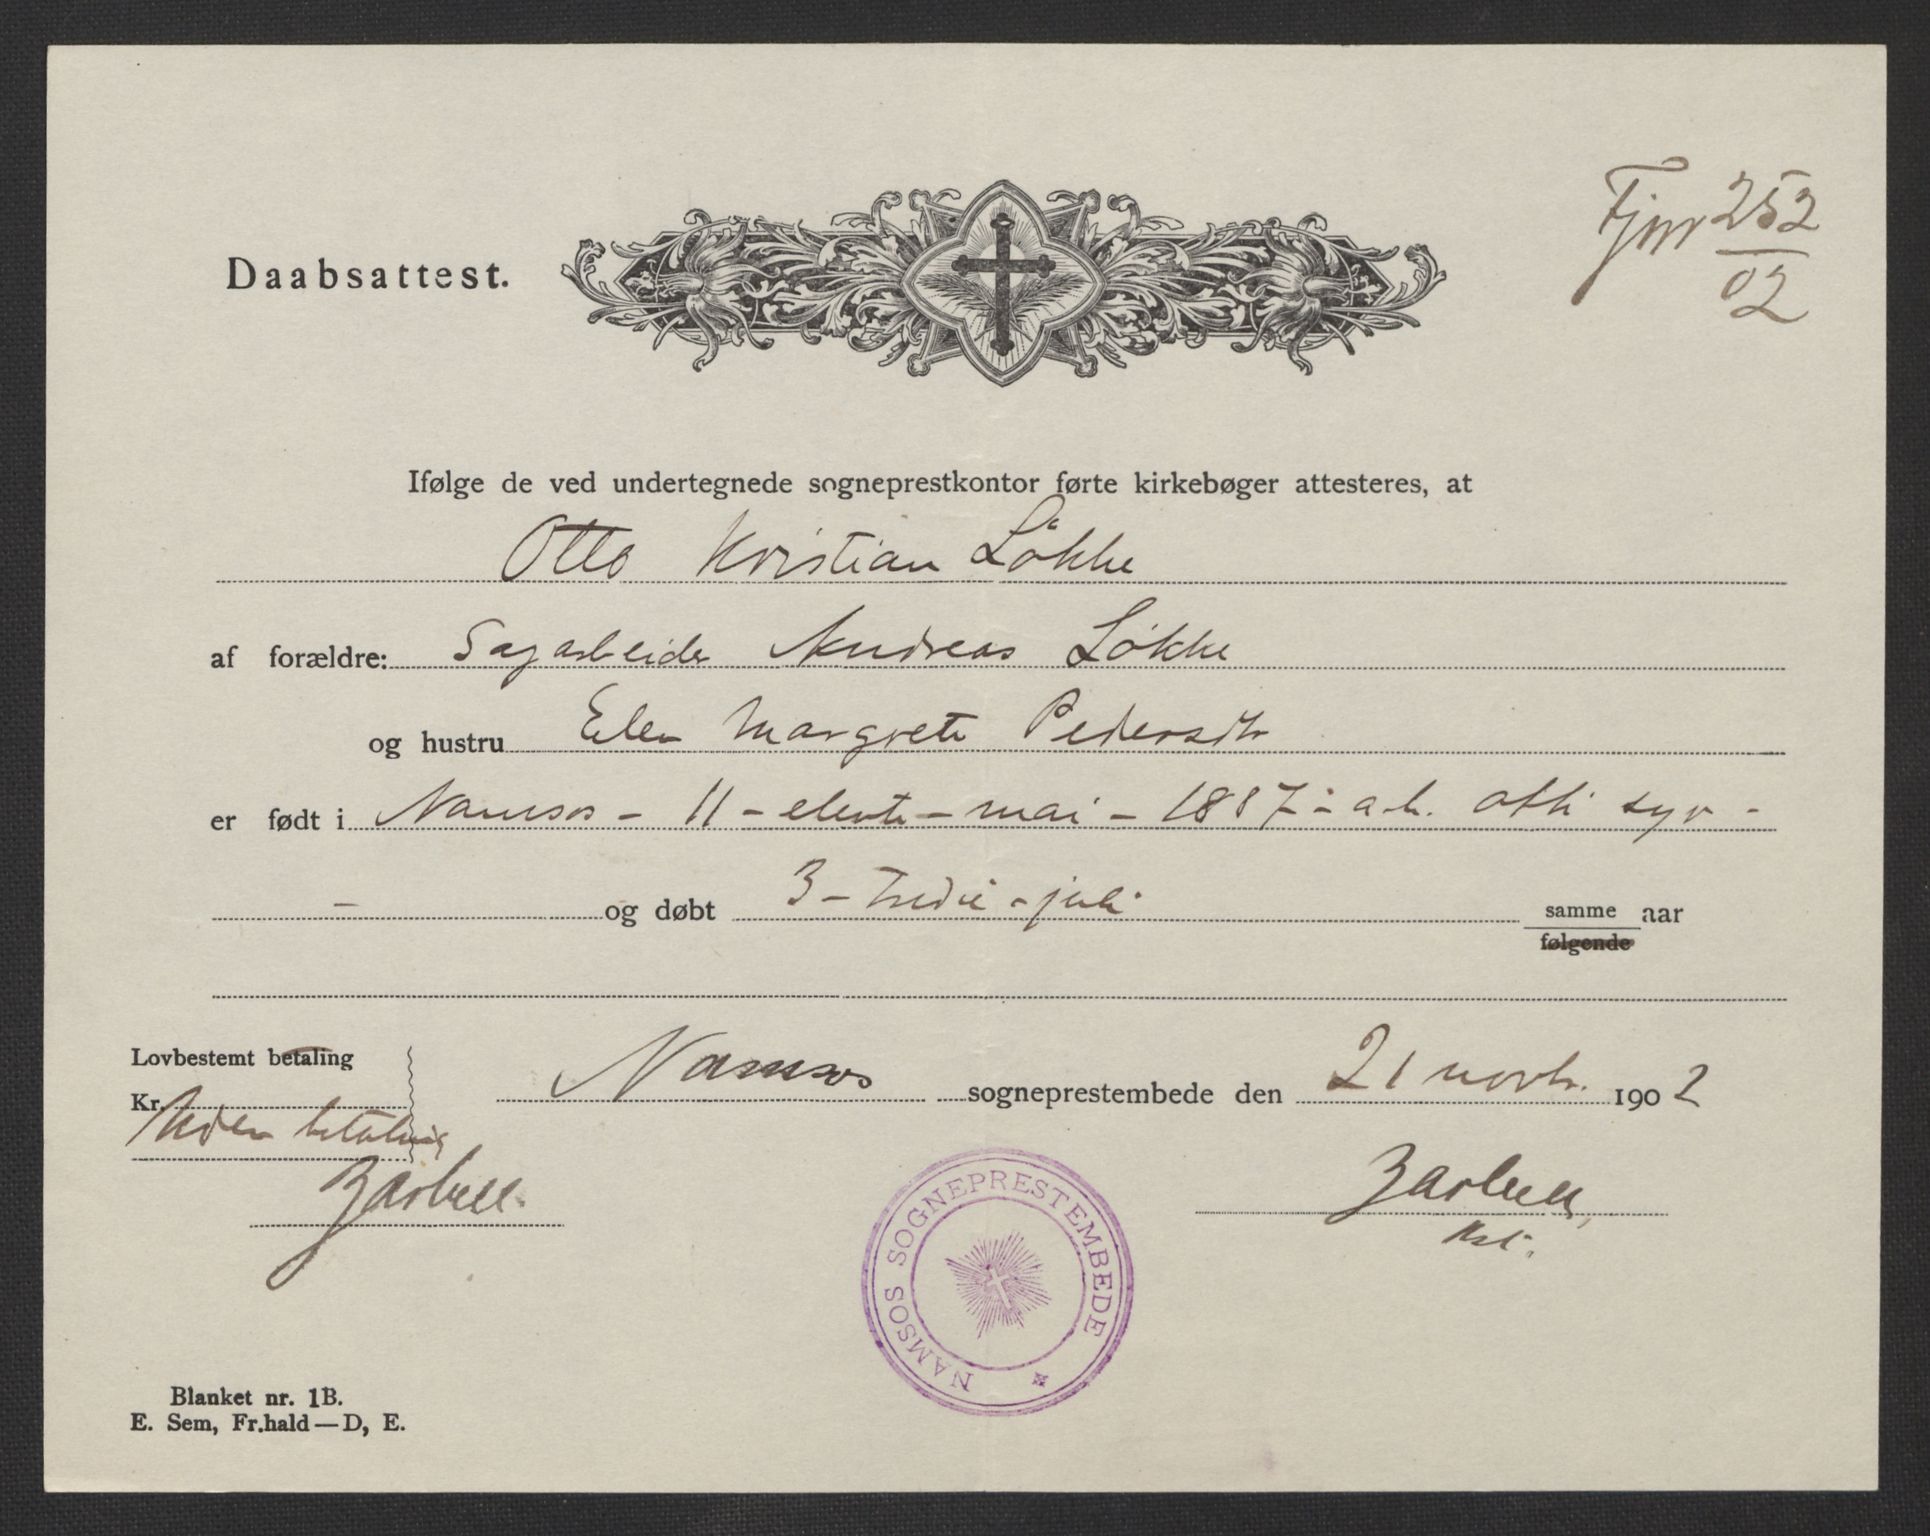 Fjnr 252
02
Daabsattest.
Ifølge de ved undertegnede sogneprestkontor førte kirkebøger attesteres, at
Otto Kristian Løkke
af forældre: Sagarbeider Andreas Løkke
og hustru Elen Margrete Pedersdtr
er født i Namsos - 11 - elevte - mai - 1887 - a.h. otti syv -
- og døbt 3 - tredie - juli samme aar
følgende
Lovbestemt betaling
Kr.
Uden betaling
Namsos sogneprestembede den 21 novbr. 1902
NAMSOS SOGNEPRESTEMBEDE
Blanket nr. 1B.
E. Sem, Fr.hald — D, E.